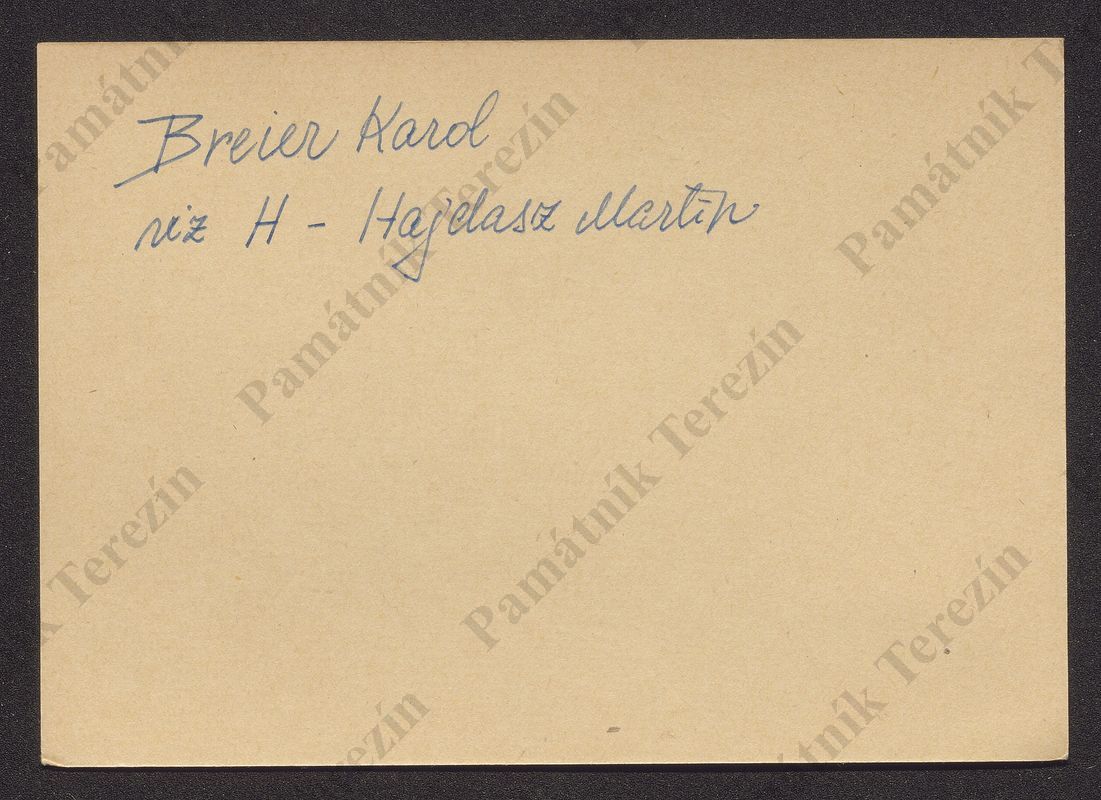 Breier Karol
viz H - Hajdasz Martin
Památník Terezín
Památník Terezín
Památník Terezín
Památník Terezín
Památník Terezín
k Terezín
rezín
mátník Terezín